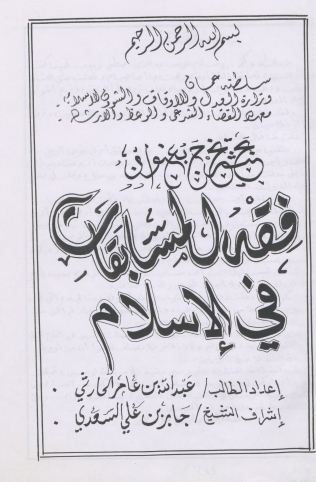 بسم الله الرحمن الرحيم
سلطنة عمان
وزارة العدل والأوقاف والشئون الإسلامية
معهد القضاء الشرعي والوعظ والإرشاد
بحث تخرج بعنوان
فقه المسابقات
في الإسلام
إعداد الطالب / عبدالله بن عامر الحارثي .
إشراف الشيخ / جابر بن علي السعدي .